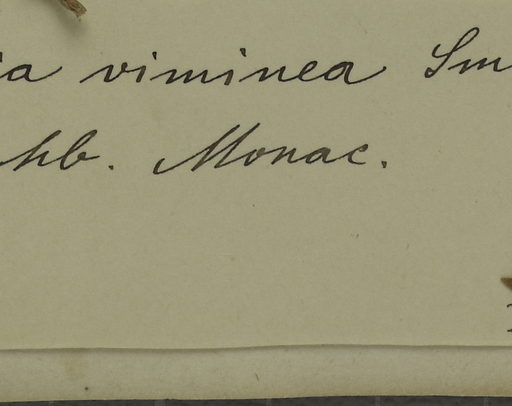 ia viminea Sm
hb. Monac.